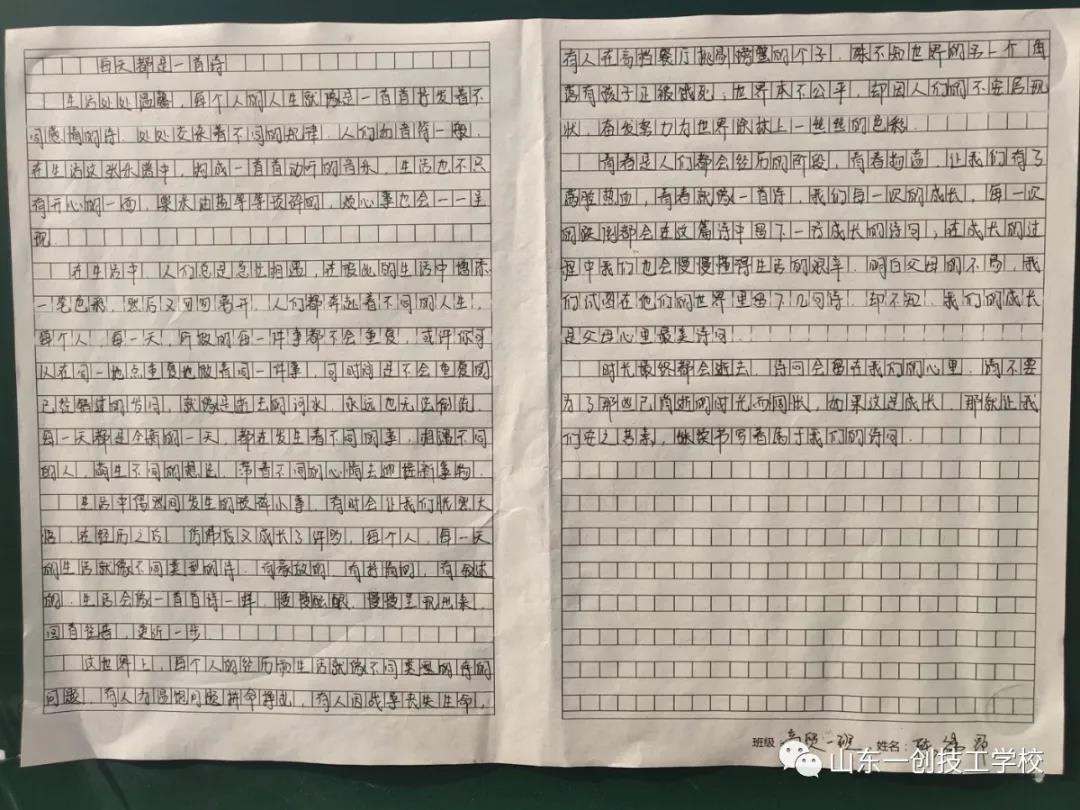 每天都是一首诗
生活处处温馨，每个人的人生就像是一首首抒发着不
同感情的诗，处处交杂着不同的规律，人们如音符一般，
在生活这张乐谱中，构成一首首动听的音乐，生活也不只
有开心的一面，柴米油盐等等琐碎的，烦心事也会一一呈
现。
在生活中，人们总是急忙相遇，在彼此的生活中增添
一笔色彩，然后又匆匆离开，人们都奔赴着不同的人生，
每个人，每一天，所做的每一件事都不会重复，或许你可
以在同一地点重复地做着同一件事，可时间是不会重复的
已经错过的时间，就像是逝去的河水，永远也无法倒流，
每一天都是全新的一天，都在发生着不同的事，相遇不同
的人，萌生不同的想法，带着不同的心情去迎接新事物。
生活中偶然间发生的琐碎小事，有时会让我们恍然大
悟，在经历之后，仿佛后又成长了许多，每个人，每一天
的生活就像不同类型的诗，有豪放的，有抒情的，有叙述
的，生活会像一首首诗一样，慢慢酝酿，慢慢呈现出来，
回首往昔，更近一步。
这世界上，每个人的经历和生活就像不同类型的诗的
问题，有人为温饱问题拼命挣扎，有人因战争丧失生命，
有人在高档餐厅挑剔螃蟹的个子，殊不知世界的另一个角
落有孩子正被饿死；世界本不公平，却因人们的不安居现
状，奋发努力为世界涂抹上一丝丝的色彩。
青春是人们都会经历的阶段，青春勃发，让我们有了
满腔热血，青春就像一首诗，我们每一次的成长，每一次
的跌倒都会在这篇诗中写下一片成长的诗句；在成长的过
程中我们也会慢慢懂得生活的艰辛，明白父母的不易，我
们试图在他们的世界里写下几句诗，却不知，我们的成长
是父母心里最美诗句。
时光最终都会逝去，诗句会留在我们的心里，请不要
为了那些已消逝的时光而惆怅，如果这是成长，那就让我
们安之若素，继续书写着属于我们的诗句。
班级 一班 姓名：陈
山东一创技工学校